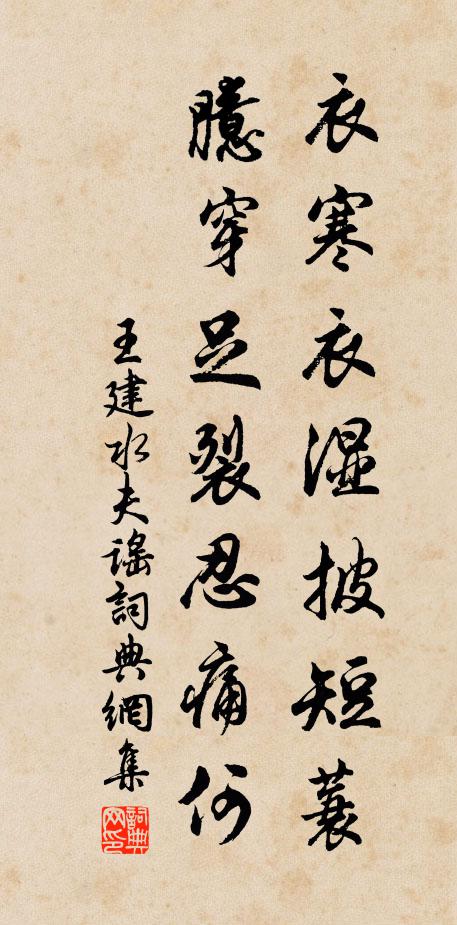 衣寒衣湿披短蓑
臆穿足裂忍痛何
王建水夫謠詞典網集
詞典网印